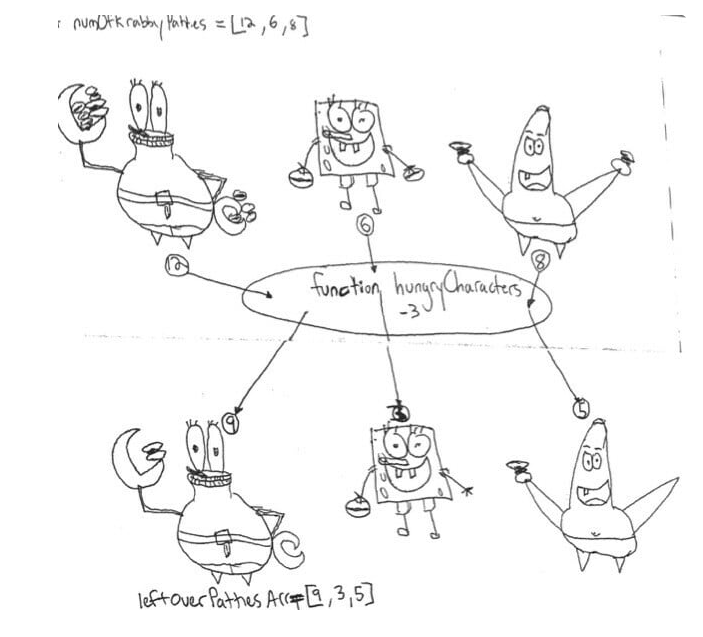 numOfKrabbyPatties = [12, 6, 8]
12
6
8
function hungryCharacters
-3
9
3
5
leftOverPattiesArr = [9, 3, 5]